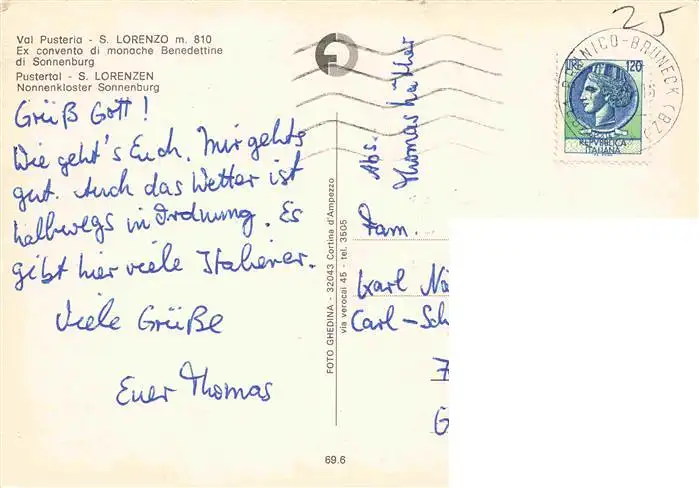 25
Val Pusteria - S. LORENZO m. 810
Ex convento di monache Benedettine
di Sonnenburg
Pustertal - S. LORENZEN
Nonnenkloster Sonnenburg
Grüß Gott!
Wie geht's Euch. Mir gehts
gut. Auch das Wetter ist
halbwegs in Ordnung. Es
gibt hier viele Italiener.
Viele Grüße
Euer Thomas
FOTO GHEDINA - 32043 Cortina d'Ampezzo
via verocai 45 - tel. 3505
69.6
Abs.
Thomas
Fam.
Karl
Carl-Sch
7
G
BRUNICO-BRUNECK (BZ)
LIRE 120
REPVBBLICA
ITALIANA